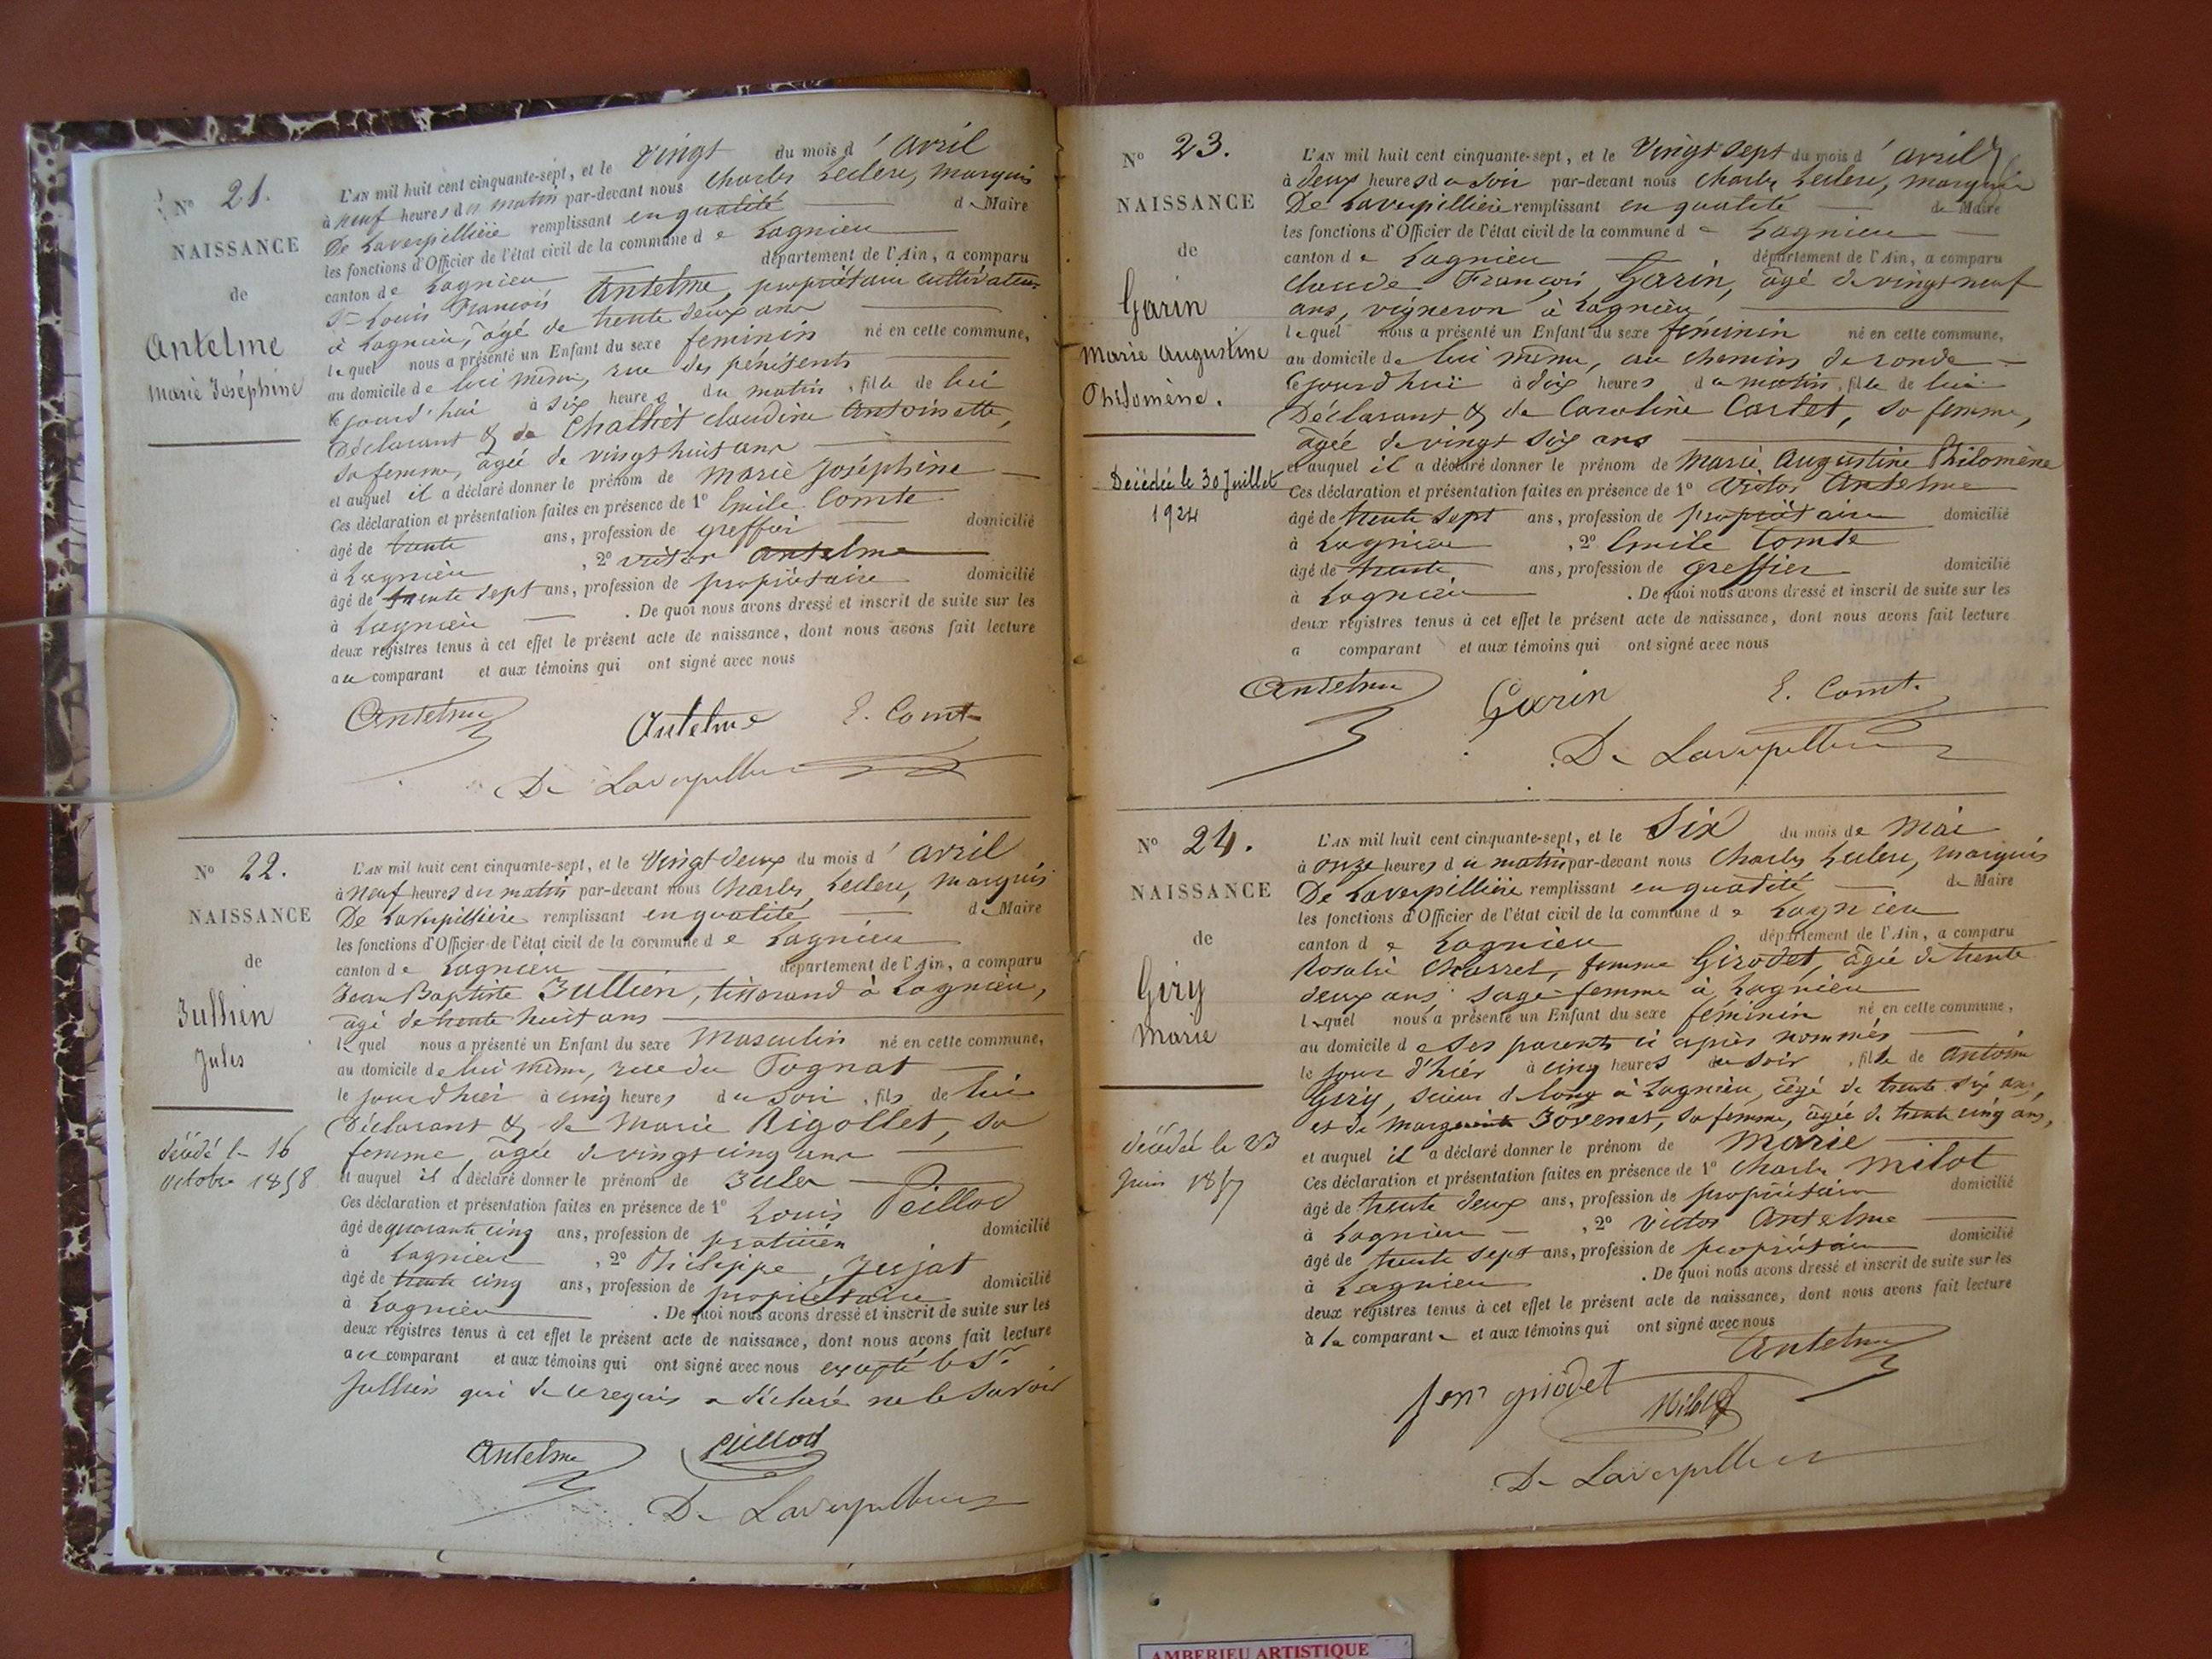 N° 21.
NAISSANCE
de
Antelme
Marie Joséphine
L'AN mil huit cent cinquante-sept, et le Vingt du mois d'avril
à neuf heures du matin par-devant nous Charles Leclerc, Marquis
De Laverpillière remplissant en qualité de Maire
les fonctions d'Officier de l'état civil de la commune de Lagnieu
canton de Lagnieu département de l'Ain, a comparu
Sr Louis François Antelme, propriétaire cultivateur
à Lagnieu, âgé de trente deux ans
lequel nous a présenté un Enfant du sexe féminin né en cette commune,
au domicile de lui même, rue des pénitents
cejourd'hui à six heures du matin, fille de lui
Déclarant & de Challiet claudine Antoinette,
sa femme, âgée de vingt huit ans
et auquel il a déclaré donner le prénom de Marie Joséphine
Ces déclaration et présentation faites en présence de 1° Emile Comte
âgé de trente ans, profession de greffier domicilié
à Lagnieu, 2° Victor Antelme
âgé de trente sept ans, profession de propriétaire domicilié
à Lagnieu. De quoi nous avons dressé et inscrit de suite sur les
deux registres tenus à cet effet le présent acte de naissance, dont nous avons fait lecture
au comparant et aux témoins qui ont signé avec nous
Antelme Antelme E. Comte
De Laverpillière
N° 22.
NAISSANCE
de
Jullien
Jules
décédé le 16
octobre 1858
L'AN mil huit cent cinquante-sept, et le Vingt deux du mois d'avril
à neuf heures du matin par-devant nous Charles Leclerc, Marquis
De Laverpillière remplissant en qualité de Maire
les fonctions d'Officier de l'état civil de la commune de Lagnieu
canton de Lagnieu département de l'Ain, a comparu
Jean Baptiste Jullien, tisserand à Lagnieu,
âgé de trente huit ans
lequel nous a présenté un Enfant du sexe Masculin né en cette commune,
au domicile de lui même, rue du Tognat
le jour d'hier à cinq heures du soir, fils de lui
Déclarant & de Marie Rigollet, sa
femme, âgée de vingt cinq ans
et auquel il a déclaré donner le prénom de Jules
Ces déclaration et présentation faites en présence de 1° Louis Peillod
âgé de quarante cinq ans, profession de praticien domicilié
à Lagnieu, 2° Philippe
âgé de trente cinq ans, profession de propriétaire domicilié
à Lagnieu. De quoi nous avons dressé et inscrit de suite sur les
deux registres tenus à cet effet le présent acte de naissance, dont nous avons fait lecture
au comparant et aux témoins qui ont signé avec nous excepté le Sr
Jullien qui de ce requis a déclaré ne le savoir
Antelme Peillod
De Laverpillière
N° 23.
NAISSANCE
de
Garin
Marie Augustine
Philomène.
Décédée le 30 Juillet
1924
L'AN mil huit cent cinquante-sept, et le Vingt sept du mois d'avril
à deux heures du soir par-devant nous Charles Leclerc, Marquis
De Laverpillière remplissant en qualité de Maire
les fonctions d'Officier de l'état civil de la commune de Lagnieu
canton de Lagnieu département de l'Ain, a comparu
Claude François Garin, âgé de vingt neuf
ans, vigneron à Lagnieu
lequel nous a présenté un Enfant du sexe féminin né en cette commune,
au domicile de lui même, au chemin de ronde
cejourd'hui à dix heures du matin, fille de lui
Déclarant & de Caroline Cartet, sa femme,
âgée de vingt six ans
et auquel il a déclaré donner le prénom de Marie Augustine Philomène
Ces déclaration et présentation faites en présence de 1° Victor Antelme
âgé de trente sept ans, profession de propriétaire domicilié
à Lagnieu, 2° Emile Comte
âgé de trente ans, profession de greffier domicilié
à Lagnieu. De quoi nous avons dressé et inscrit de suite sur les
deux registres tenus à cet effet le présent acte de naissance, dont nous avons fait lecture
a comparant et aux témoins qui ont signé avec nous
Antelme Garin E. Comte
De Laverpillière
N° 24.
NAISSANCE
de
Giry
Marie
décédée le 23
Juin 1857
L'AN mil huit cent cinquante-sept, et le Six du mois de Mai
à onze heures du matin par-devant nous Charles Leclerc, Marquis
De Laverpillière remplissant en qualité de Maire
les fonctions d'Officier de l'état civil de la commune de Lagnieu
canton de Lagnieu département de l'Ain, a comparu
Rosalie Charrel, femme Girodet, âgée de trente
deux ans, sage femme à Lagnieu
lequel nous a présenté un Enfant du sexe féminin né en cette commune,
au domicile de ses parents ci après nommés
le jour d'hier à cinq heures du soir, fille de Antoine
Giry, scieur de long à Lagnieu, âgé de trente six ans,
et de Marguerite Jovenet, sa femme, âgée de trente cinq ans,
et auquel il a déclaré donner le prénom de Marie
Ces déclaration et présentation faites en présence de 1° Charles Milot
âgé de trente deux ans, profession de propriétaire domicilié
à Lagnieu, 2° Victor Antelme
âgé de trente sept ans, profession de propriétaire domicilié
à Lagnieu. De quoi nous avons dressé et inscrit de suite sur les
deux registres tenus à cet effet le présent acte de naissance, dont nous avons fait lecture
à la comparante et aux témoins qui ont signé avec nous
Antelme
fem girodet Milot
De Laverpillière
AMBERIEU ARTISTIQUE